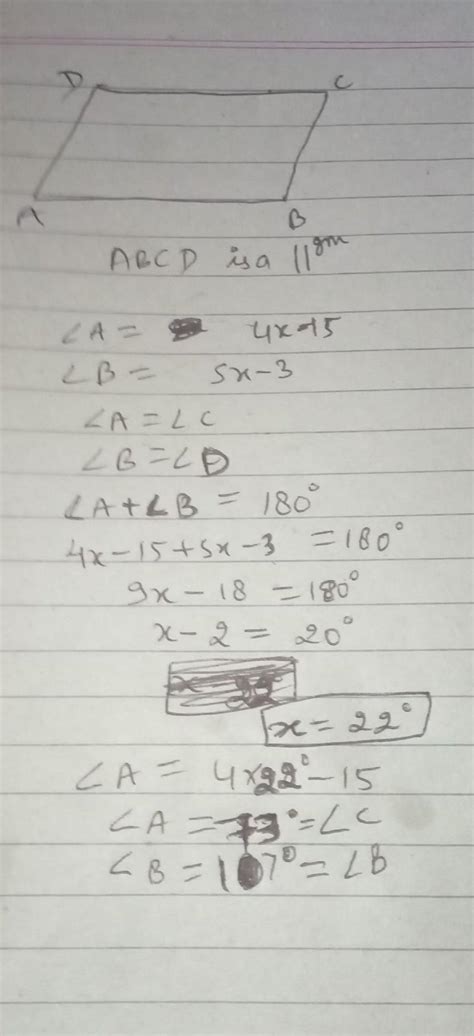 D C
A B
ABCD is a ||gm
∠A = 4x-15
∠B = 5x-3
∠A = ∠C
∠B = ∠D
∠A + ∠B = 180°
4x-15+5x-3 = 180°
9x-18 = 180°
x-2 = 20°
x = 22°
∠A = 4x22°-15
∠A = 73° = ∠C
∠B = 107° = ∠B